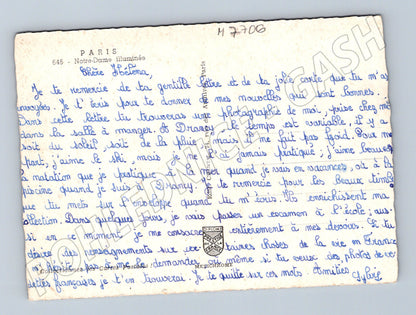 M 7706
PARIS
646 - Notre-Dame illuminée
Chère Helena,
Je te remercie de ta gentille lettre et de ta jolie carte que tu m'as
envoyées. Je t'écris pour te donner de mes nouvelles qui sont bonnes.
Dans cette lettre tu trouveras une photographie de moi, prise chez moi
dans la salle à manger. A Drancy, le temps est variable, il y a
soit du soleil, soit de la pluie mais il ne fait pas froid. Pour ma
part, j'aime le ski, mais je ne l'ai jamais pratiqué, j'aime beaucoup
la natation que je pratique à la mer quand je suis en vacances, et à la
piscine quand je suis à Drancy. Je te remercie pour les beaux timbres
que tu mets sur l'enveloppe quand tu m'écris. Ils enrichissent ma
collection. Dans quelques jours, je vais passer un examen à l'école, aussi
en ce moment, je me consacre entièrement à mes devoirs. Si tu
désires des renseignements sur certaines choses de la vie en France
n'hésite pas à me le demander, ou même si tu veux des photos de ve-
dettes françaises je t'en trouverai. Je te quitte sur ces mots. Amitiés
Sylvie